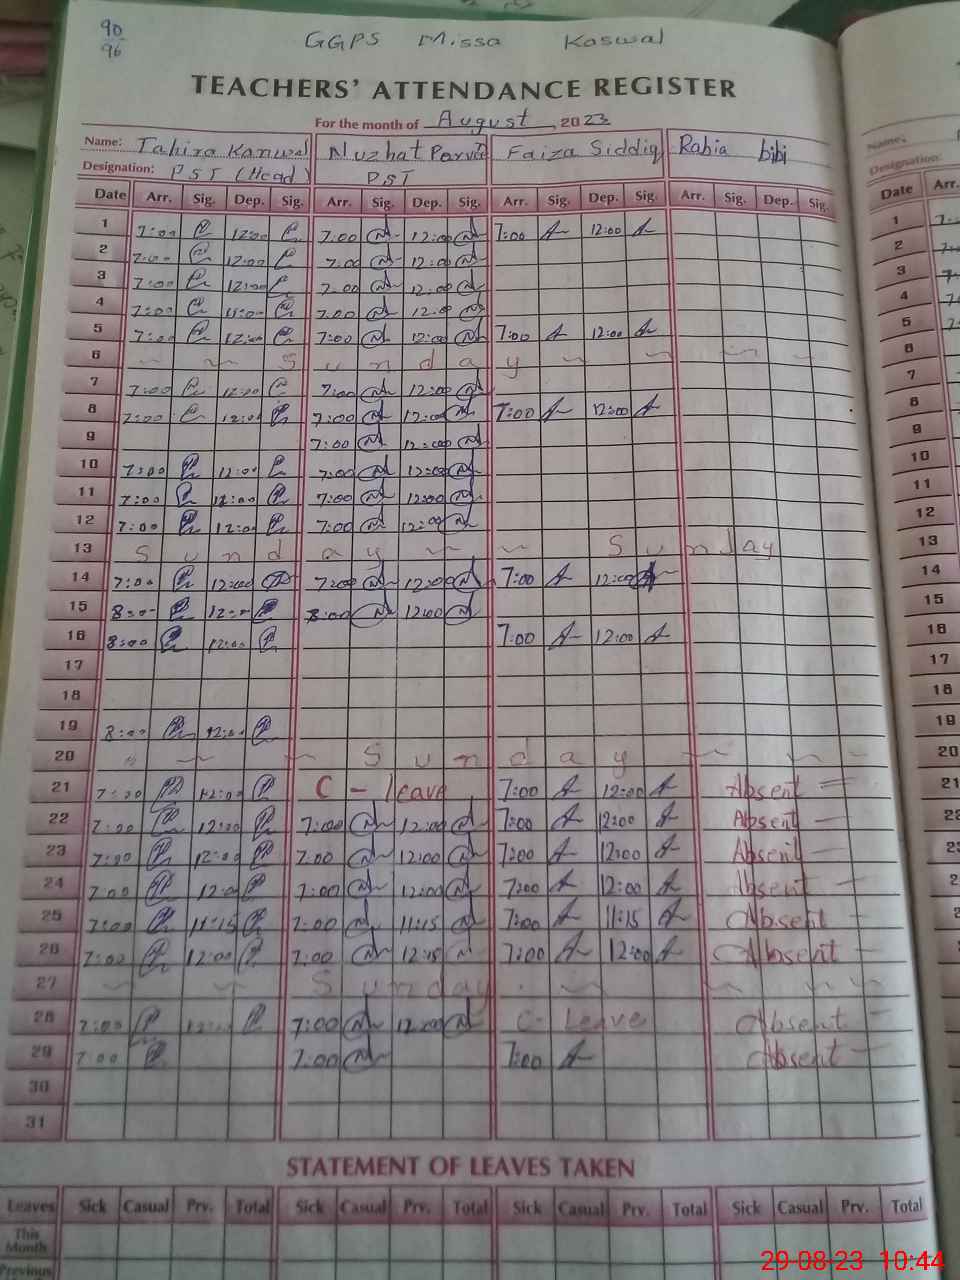 90
96
GGPS Missa Kaswal
TEACHERS' ATTENDANCE REGISTER
For the month of August, 2023
Name: Tahira Kanwal Nuzhat Parvin Faiza Siddiq Rabia bibi
Designation: PST (Head) PST
Date Arr. Sig. Dep. Sig. Arr. Sig. Dep. Sig. Arr. Sig. Dep. Sig. Arr. Sig. Dep. Sig.
1 7:00 12:00 7:00 12:00 7:00 12:00
2 7:00 12:00 7:00 12:00
3 7:00 12:00 7:00 12:00
4 7:00 7:00 12:00
5 7:00 12:00 7:00 12:00 7:00 12:00
6 Sunday
7 7:00 12:00 7:00 12:00
8 7:00 12:00 7:00 12:00 7:00 12:00
9 7:00 12:00
10 7:00 12:00 7:00 12:00
11 7:00 12:00 7:00 12:00
12 7:00 12:00 7:00 12:00
13 Sunday Sunday
14 7:00 12:00 7:00 12:00 7:00 12:00
15 8:00 12:00 8:00 12:00
16 8:00 12:00 7:00 12:00
17
18
19 8:00 12:00
20 Sunday
21 7:00 12:00 C - leave 7:00 12:00 Absent
22 7:00 12:00 7:00 12:00 7:00 12:00 Absent
23 7:00 12:00 7:00 12:00 7:00 12:00 Absent
24 7:00 12:00 7:00 12:00 7:00 12:00 Absent
25 7:00 11:15 7:00 11:15 7:00 11:15 Absent
26 7:00 12:00 7:00 7:00 12:00 Absent
27 Sunday
28 7:00 7:00 12:00 C- Leave Absent
29 7:00 7:00 7:00 Absent
30
31
STATEMENT OF LEAVES TAKEN
Leaves Sick Casual Prv. Total Sick Casual Prv. Total Sick Casual Prv. Total Sick Casual Prv. Total
This Month
Previous
29-08-23 10:44